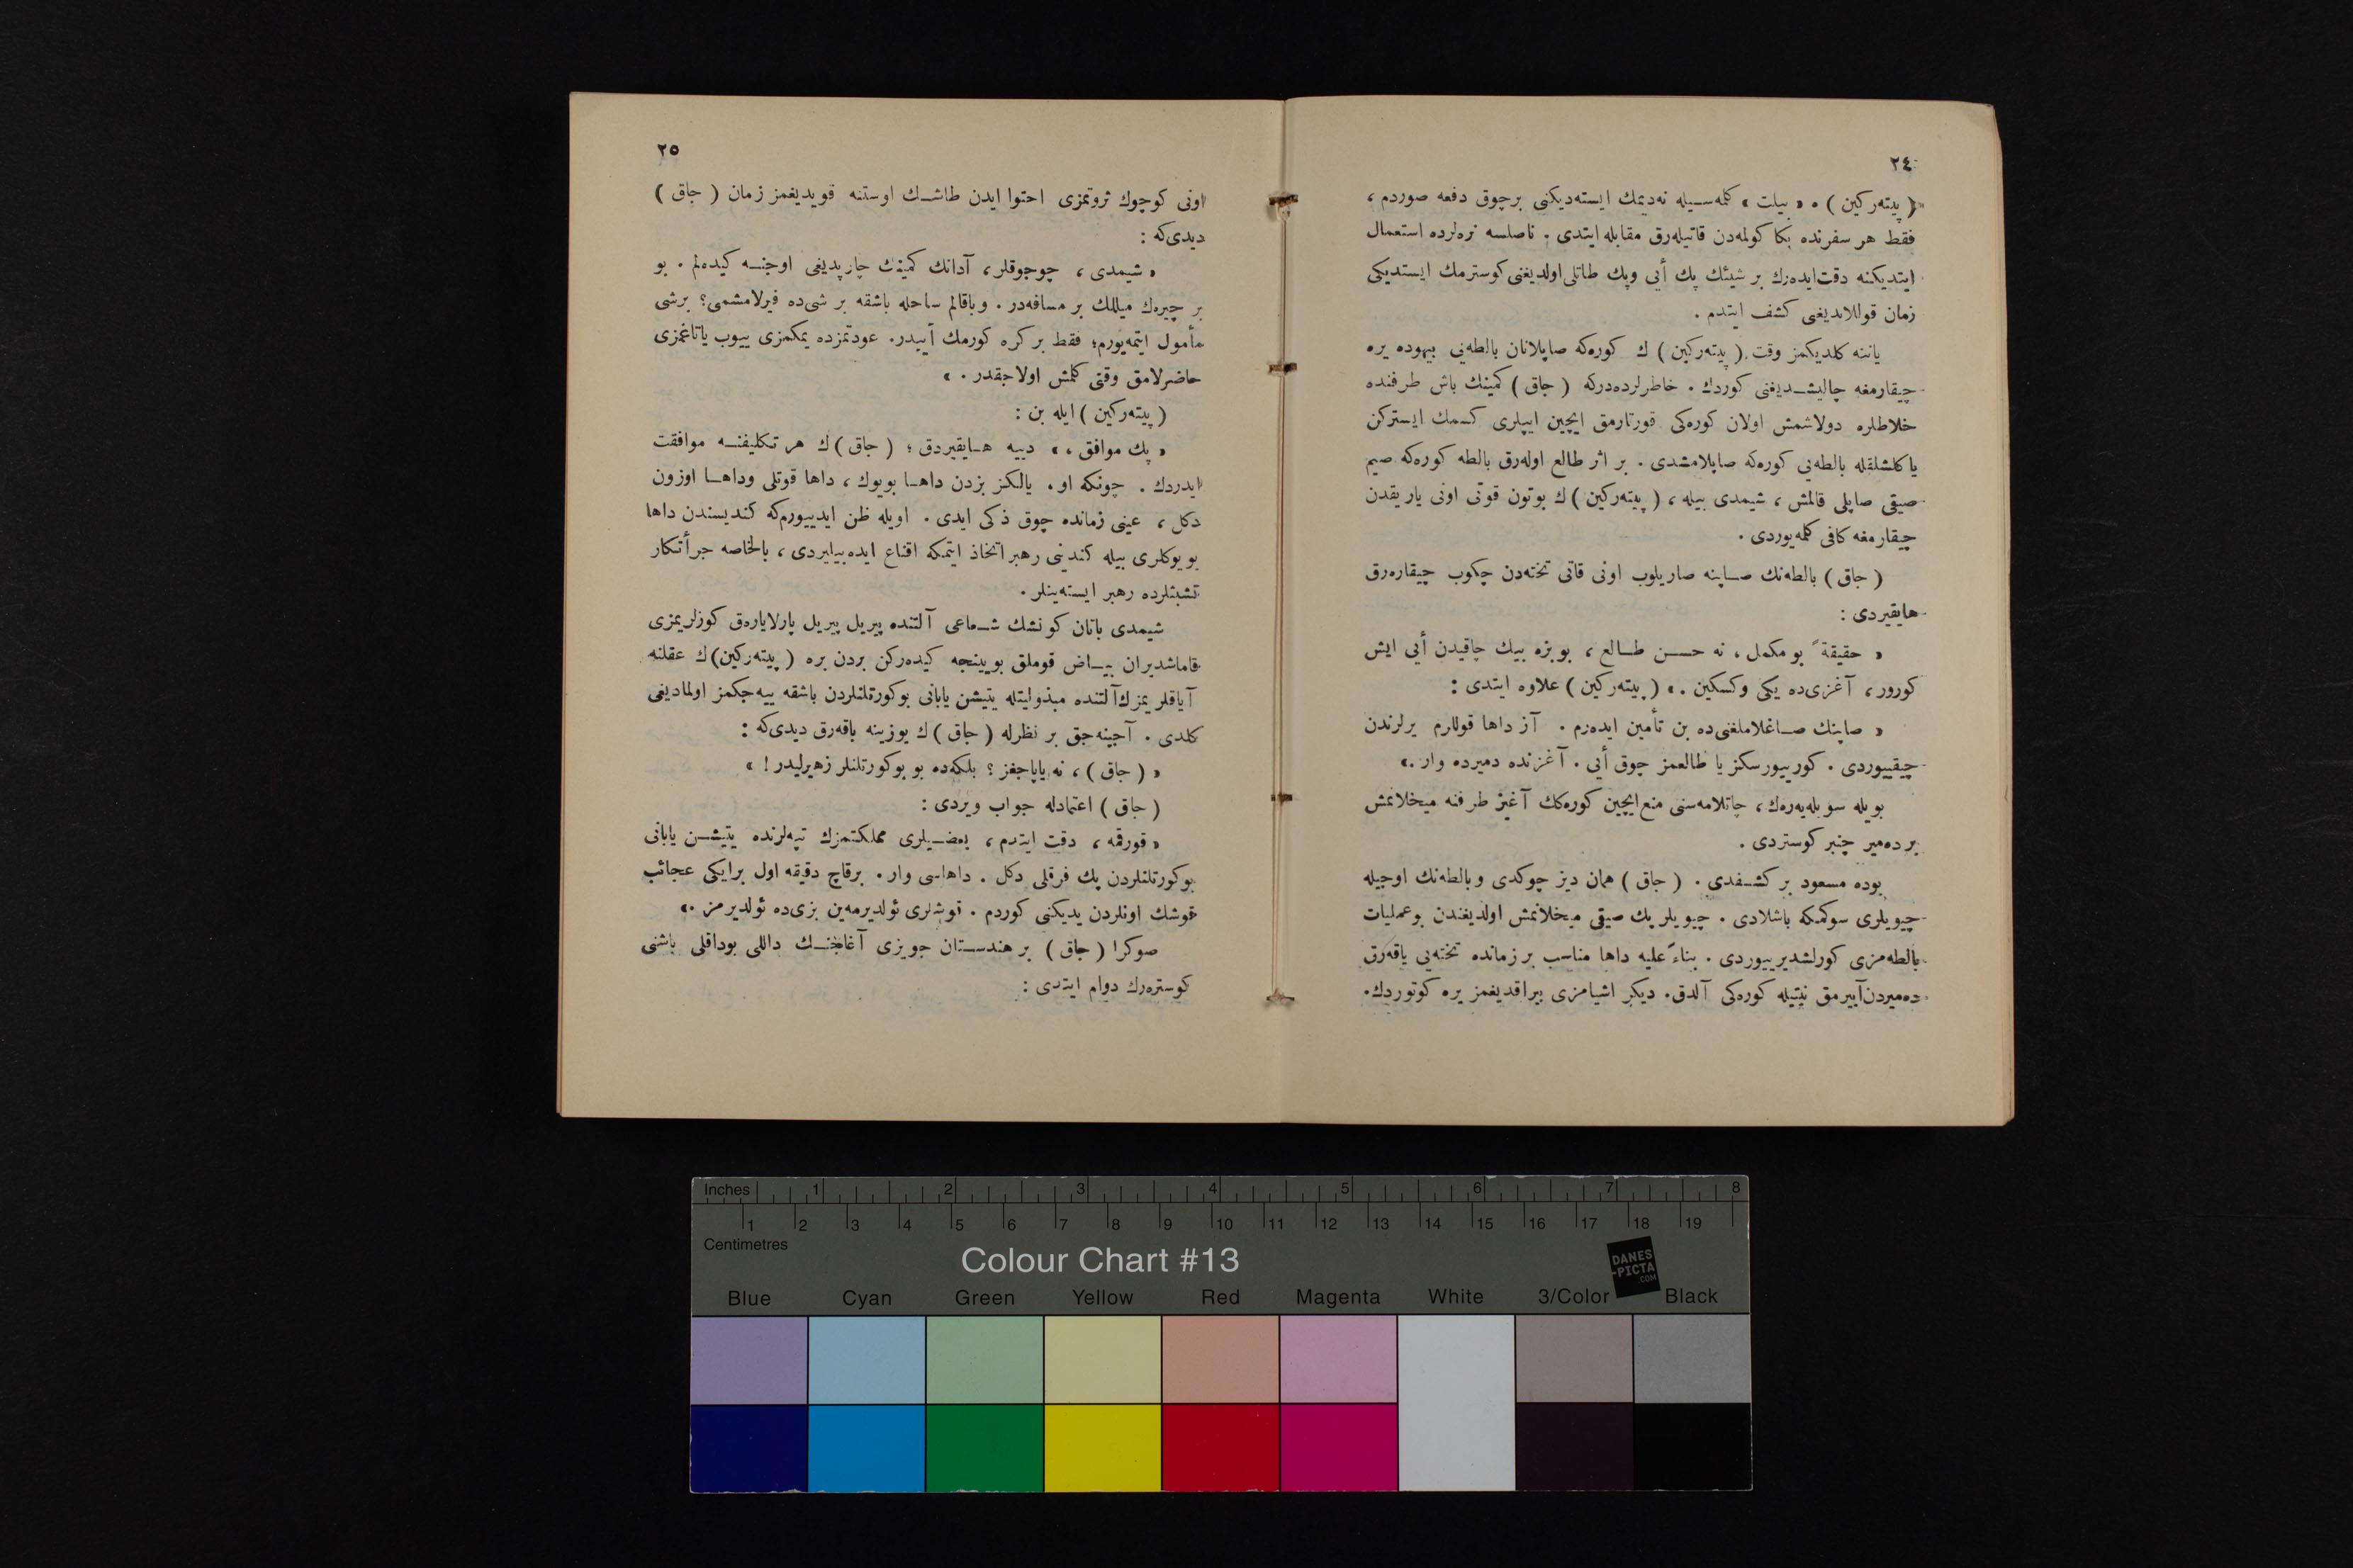 ٢٤
( پیته‌ركین ) ه « بیلت » كلمه‌سیله نه‌دیمك ایسته‌دیكنی برچوق دفعه صوردم ،
فقط هر سفرنده بكا كولمه‌دن قاتیله‌رق مقابله ایتدی . ناصلسه نره‌لرده استعمال
ایتدیكنه دقت‌ایده‌رك بر شیئك پك أیی وپك طاتلی‌اولدیغنی‌كوسترمك ایستدیكی
زمان قوللاندیغی كشف ایتدم .
یاننه كلدیكمز وقت ( پیته‌ركین ) ك كوره‌كه صاپلانان بالطه‌یی بیهوده یره
چیقارمغه چالیشدیغنی كوردك . خاطرلرده‌دركه ( جاق ) كمینك باش طرفنده
خلاطلره دولاشمش اولان كوره‌كی قورتارمق ایچین ایپلری كسمك ایستركن
یاكلشلقله بالطه‌یی كوره‌كه صاپلامشدی . بر اثر طالع اوله‌رق بالطه كوره‌كه صیم
صیقی صاپلی قالمش ، شیمدی بیله ، ( پیته‌ركین ) ك بوتون قوتی اونی یاریقدن
چیقارمغه كافی كلمه‌یوردی .
( جاق ) بالطه‌نك صاپنه صاریلوب اونی قاتی تخته‌دن چكوب چیقاره‌رق
هایقیردی :
« حقیقة ً بو مكمل ، نه حسن طالع ، بوبزه بیك چاقیدن أیی ایش
كورور ، آغزی‌ده یكی وكسكین .» ( پیته‌ركین ) علاوه ایتدی :
« صاپنك صاغلاملغنی‌ده بن تأمین ایده‌رم . آز داها قوللرم یرلرندن
چیقییوردی . كورییورسكز یا طالعمز چوق أیی . آغزنده دمیرده وار .»
بویله سویله‌یه‌رك ، چاتلامه‌سنی منع‌ایچین كوره‌كك آغیز طرفنه میخلانمش
بر ده‌میر چنبر كوستردی .
بوده مسعود بر كشفدی . ( جاق ) همان دیز چوكدی وبالطه‌نك اوجیله
چیویلری سوكمكه باشلادی . چیویلر پك صیقی میخلانمش اولدیغندن بوعملیات
بالطه‌مزی كورلشدیرییوردی . بناءً علیه داها مناسب بر زمانده تخته‌یی یاقه‌رق
ده‌میردن‌آییرمق نیتیله كوره‌كی آلدق . دیكر اشیامزی بیراقدیغمز یره كوتوردك .
٢٥
اونی كوچوك ثروتمزی احتوا ایدن طاشك اوستنه قویدیغمز زمان ( جاق )
دیدی‌كه :
« شیمدی ، چوجوقلر ، آدانك كمینك چارپدیغی اوجنه كیده‌لم . بو
بر چیره‌ك میللك بر مسافه‌در . وباقالم ساحله باشقه بر شی‌ده فیرلامشمی؟ برشی
مأمول ایتمه‌یورم؛ فقط بر كره كورمك أییدر. عودتمزده یمكمزی ییوب یاتاغمزی
حاضرلامق وقتی كلمش اولاجقدر . »
( پیته‌ركین ) ایله بن :
« پك موافق ،» دییه هایقیردق ؛ ( جاق ) ك هر تكلیفنه موافقت
ایدردك . چونكه او . یالكز بزدن داها بویوك ، داها قوتلی وداها اوزون
دكل ، عینی زمانده چوق ذكی ایدی . اویله ظن ایدییورم‌كه كندیسندن داها
بویوكلری بیله كندینی رهبر اتخاذ ایتمكه اقناع ایده‌بیلیردی ، بالخاصه جرأتكار
تشبثلرده رهبر ایسته‌ینلر .
شیمدی باتان كونشك شعاعی آلتنده پیریل پیریل پارلایاره‌ق كوزلریمزی
قاماشدیران بیاض قوملق بویینجه كیده‌ركن بردن بره ( پیته‌ركین ) ك عقلنه
آیاقلریمزك‌آلتنده مبذولیتله یتیشن یابانی بوكورتلنلردن باشقه ییه‌جكمز اولمادیغی
كلدی . آجینه‌جق بر نظرله ( جاق ) ك یوزینه باقه‌رق دیدی‌كه :
« ( جاق ) ، نه یاپاجغز ؟ بلكه‌ده بو بوكورتلنلر زهیرلیدر ! »
( جاق ) اعتمادله جواب ویردی :
« قورقمه ، دقت ایتدم ، بعضیلری مملكتمزك تپه‌لرنده یتیشن یابانی
بوكورتلنلردن پك فرقلی دكل . داهاسی وار . برقاچ دقیقه اول برایكی عجائب
قوشك اونلردن یدیكنی كوردم . قوشلری ئولدیرمه‌ین بزی‌ده ئولدیرمز .»
صوكرا ( جاق ) بر هندستان جویزی آغاجنك داللی بوداقلی باشنی
كوستره‌رك دوام ایتدی :
Inches 1 2 3 4 5 6 7 8
1 2 3 4 5 6 7 8 9 10 11 12 13 14 15 16 17 18 19
Centimetres
Colour Chart #13
DANES
-PICTA
.COM
Blue Cyan Green Yellow Red Magenta White 3/Color Black